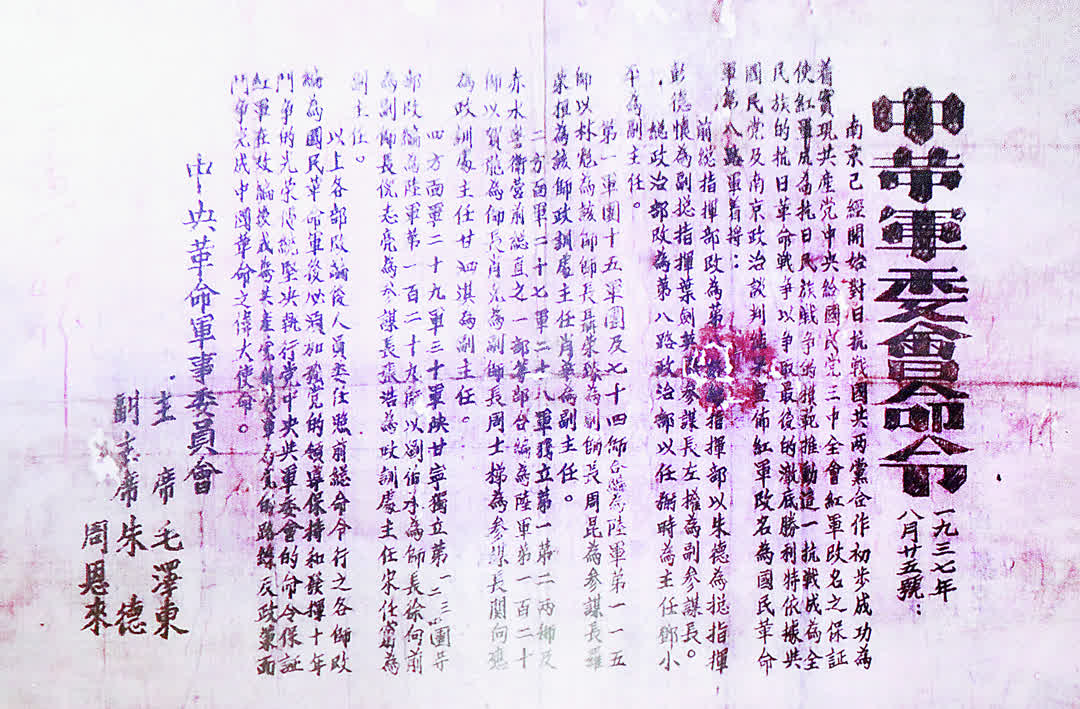 中华軍委會命令
一九三七年
八月廿五號：
南京已經開始對日抗戰國共两黨合作初步成功為
着實現共產党中央給國民党三中全會紅軍改名之保証
使紅軍成為抗日民族战争的模範推動這一抗战成為全
民族的抗日革命戰争以争取最後的澈底勝利特依據共
國民党及南京政治談判結果宣佈紅軍改名為國民革命
軍第八路軍着将：
前總指揮部改為第八路總指揮部以朱德為總指揮
彭德懷為副總指揮葉劍英為參謀長左權為副參謀長。
總政治部改為第八路政治部以任弼時為主任鄧小
平為副主任。
第一軍團十五軍團及七十四師合編為陸軍第一一五
師以林彪為該師師長聶荣臻為副師長周昆為參謀長羅
荣桓為該師政訓處主任肖華為副主任。
二方面軍二十七軍二十八軍獨立第一第二两師及
赤水警衛營前總直之一部等部合編為陸軍第一百二十
師以賀龍為師長肖克為副師長周士梯為參謀長関向應
為政訓處主任甘泗淇為副主任。
四方面軍二十九軍三十軍陕甘寧獨立第一二三四團等
部改編為陸軍第一百二十九師以劉伯承為師長徐向前
為副師長倪志亮為參謀長張浩為政訓處主任宋任窮為
副主任。
以上各部改編後人員委任照前總命令行之各師改
編為國民革命軍後必須加强党的領導保持和發揮十年
鬥争的光荣傳統堅决執行党中央共軍委會的命令保証
紅軍在改編後成為共產党的党軍為党的路線及政策而
鬥争完成中國革命之偉大使命。
中央革命軍事委員會
主席 毛澤東
副主席 朱德
周恩來